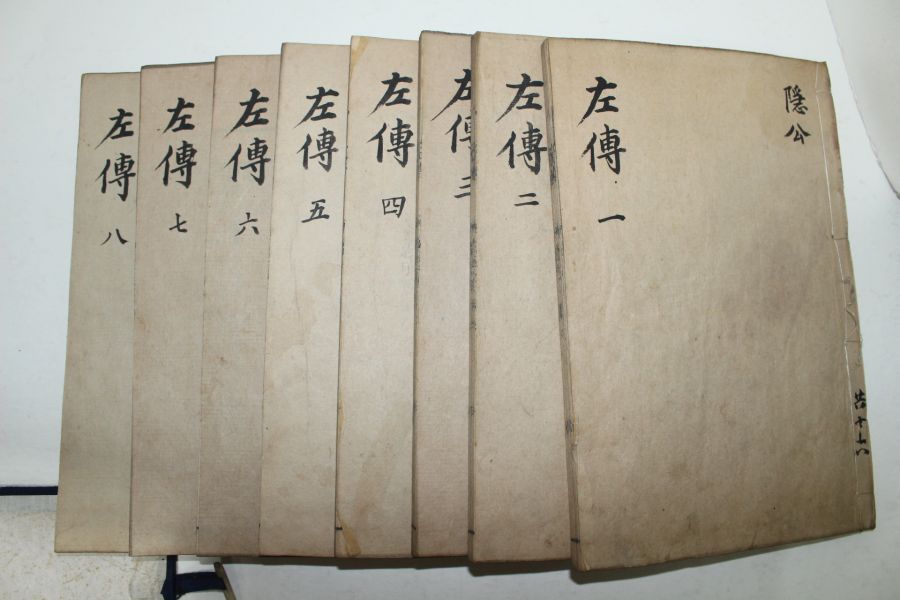 隠公
左傳 一
左傳 二
左傳 三
左傳 四
左傳 五
左傳 六
左傳 七
左傳 八